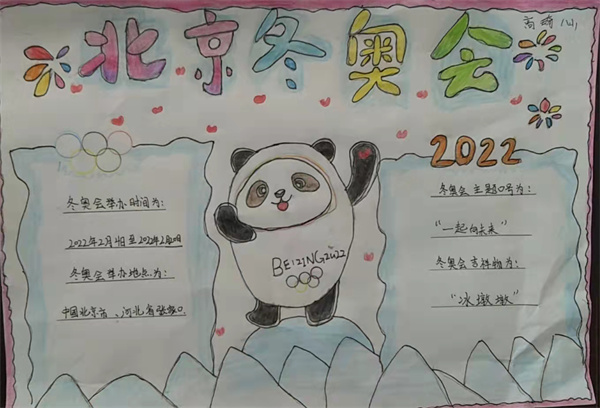 北京冬奥会
2022
冬奥会举办时间为:
2022年2月4日至2022年2月20日
冬奥会举办地点为:
中国北京市、河北省张家口
BEIZING2022
冬奥会主题口号为:
“一起向未来”
冬奥会吉祥物为:
“冰墩墩”